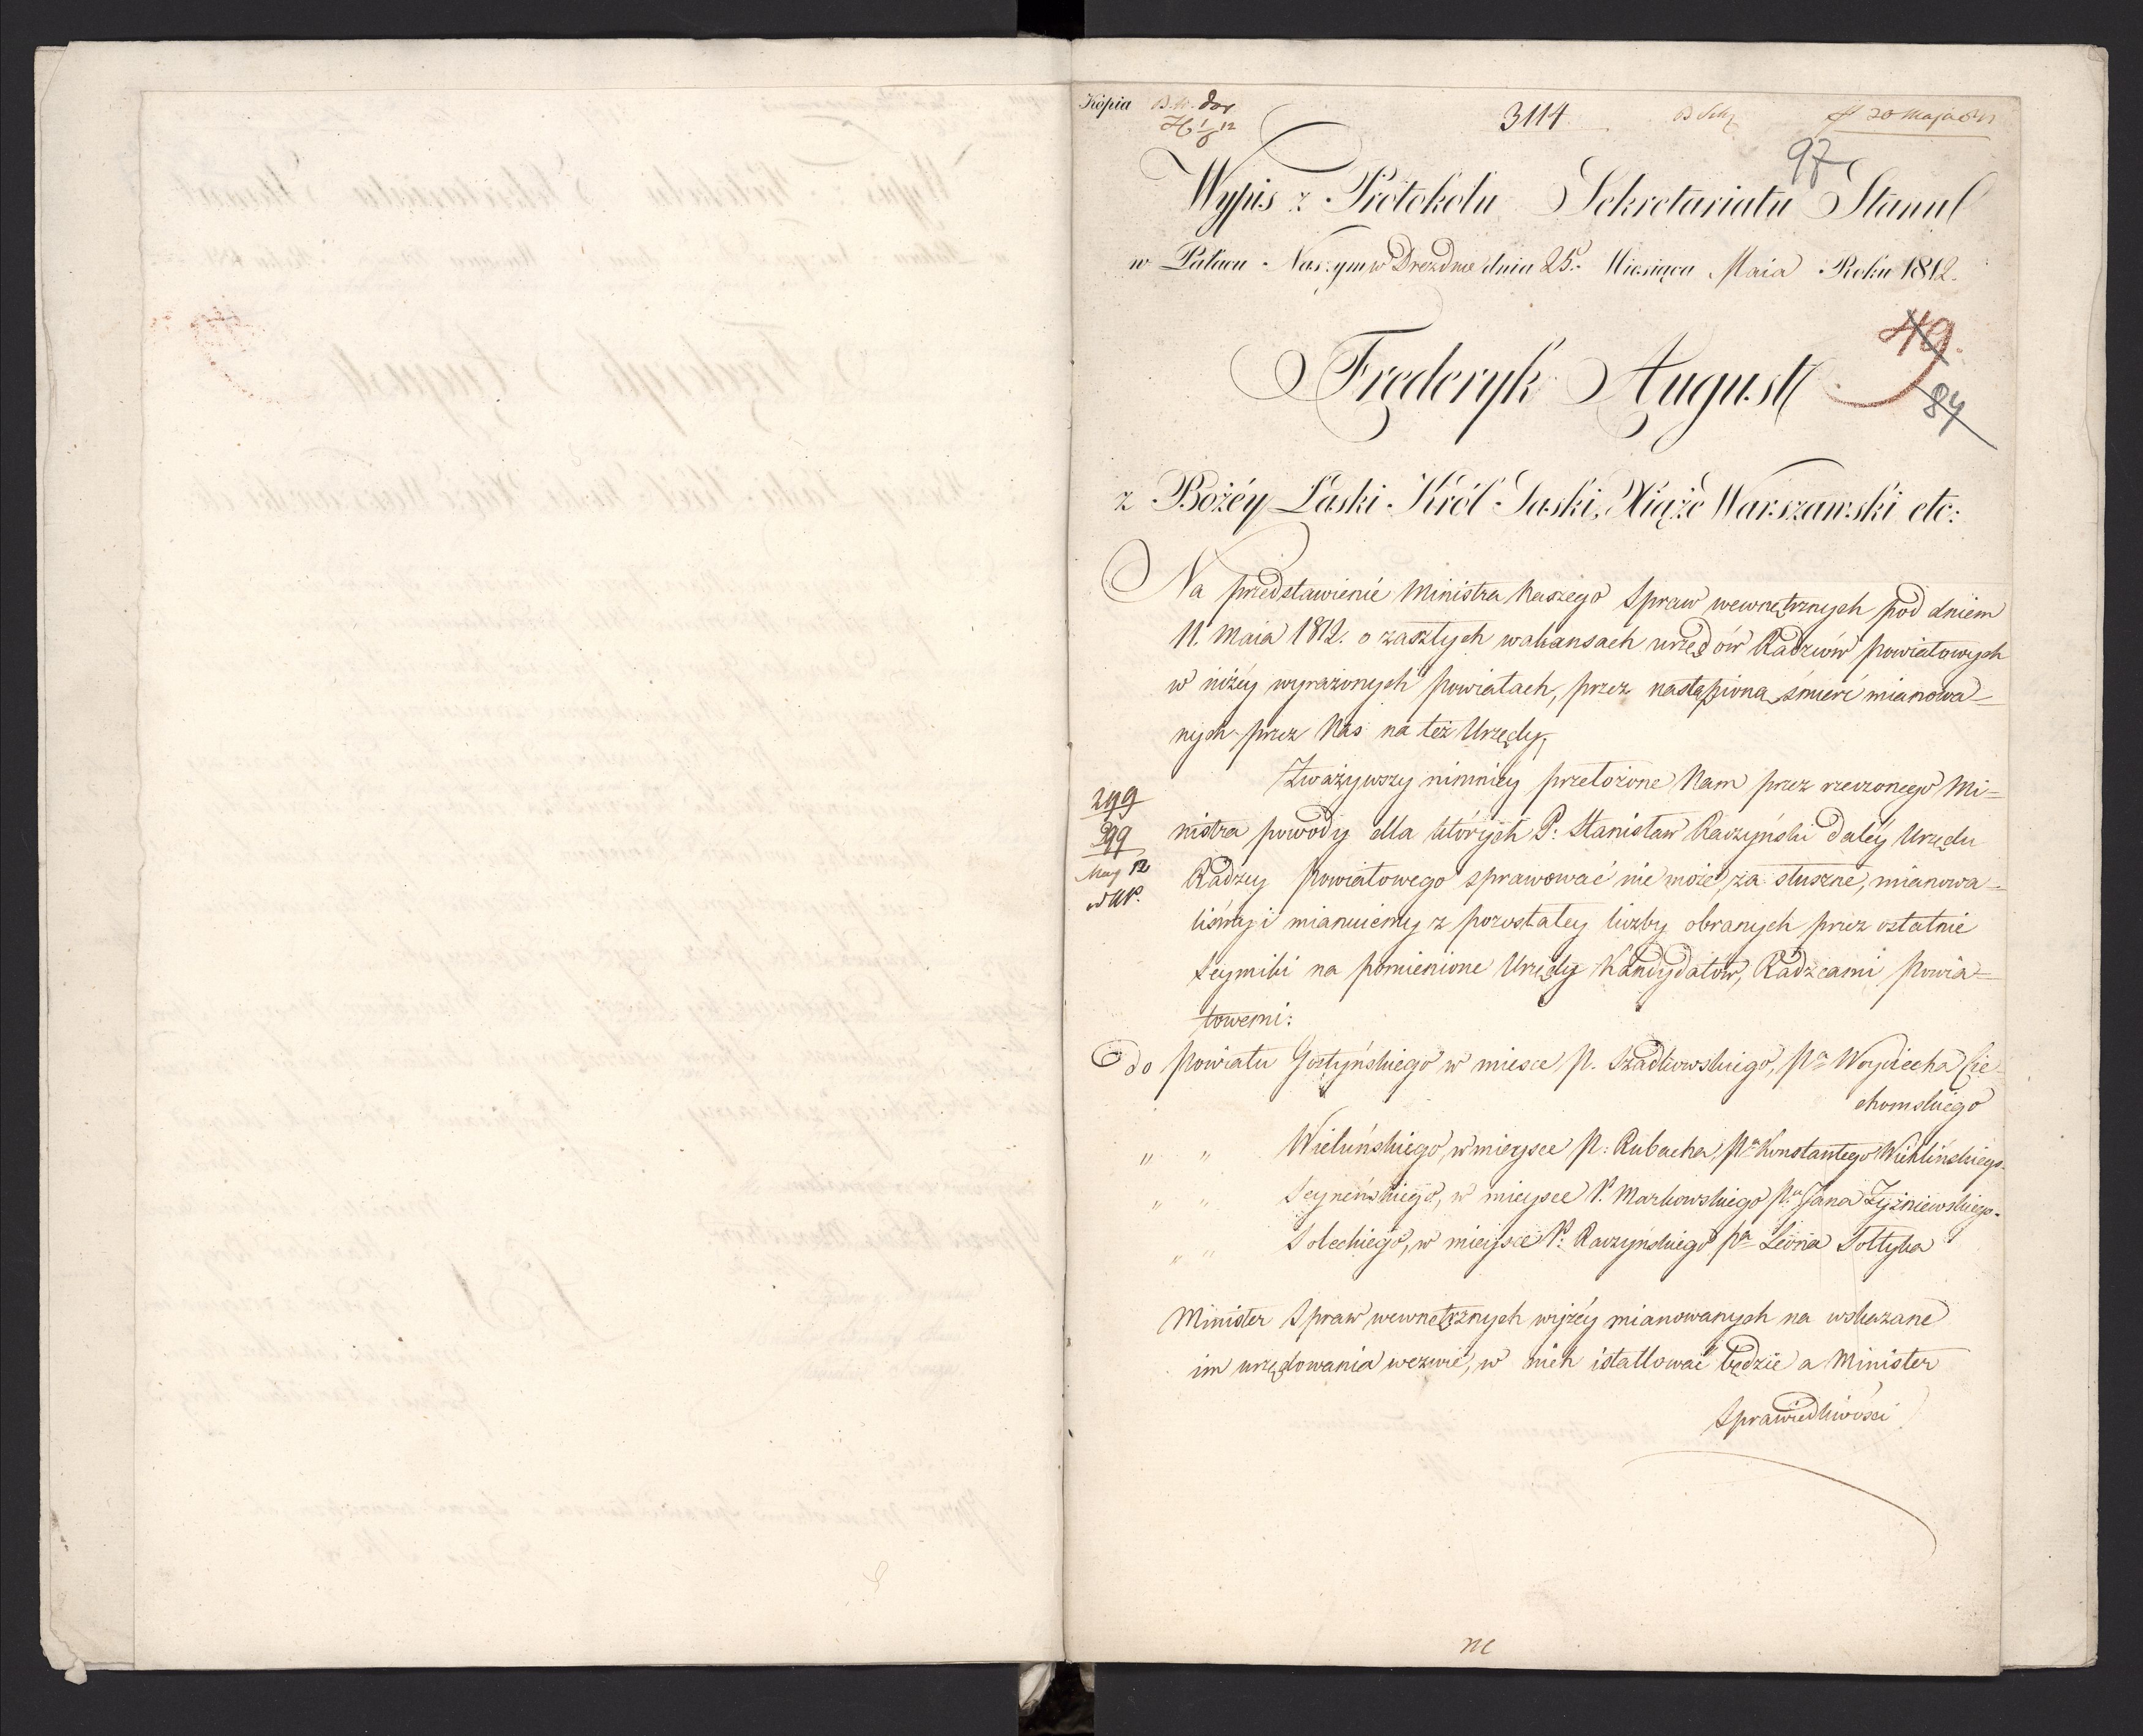 Kopia
3114.
97
Wypis z Protokołu Sekretariatu Stanu
w Pałacu Naszym w Dreźdnie dnia 25. Miesiąca Maia Roku 1812.
49.
84
Frederyk August
z Bożéy Łaski Król Saski, Xiąże Warszawski etc:
Na przedstawienie Ministra Naszego Spraw wewnętrznych pod dniem
11. Maia 1812. o zaszłych wakansach urzędów Radzców powiatowych
w niżéy wyrażonych powiatach, przez nastąpioną śmierć mianowa=
nych przez Nas na też Urzędy,
Zważywszy niemniéy przełożone Nam przez rzeczonego Mi=
299
nistra powody dla których P: Stanisław Raczyński daléy Urzędu
Radzcy Powiatowego sprawować nie może, za słuszne, mianowa=
liśmy i mianuiemy z pozostałey liczby obranych przez ostatnie
Seymiki na pomienione Urzędy Kandydatów, Radzcami Powia=
towemi:
do Powiatu Gostyńskiego w miesce P. Szadkowskiego, Pa Woyciecha Cie=
chomskiego
" " Wieluńskiego, w mieysce P: Rubacha, Pa Konstantego Wichlińskiego.
" " Seyneńskiego, w mieysce P. Markowskiego Pa Jana Zyźniewskiego.
" " Soleckiego, w mieysce P: Raczyńskiego Pa Leona Sołtyka
Minister Spraw wewnętrznych wyżéy mianowanych na wskazane
im urzędowania wezwie, w nich istallować będzie a Minister
Sprawiedliwości